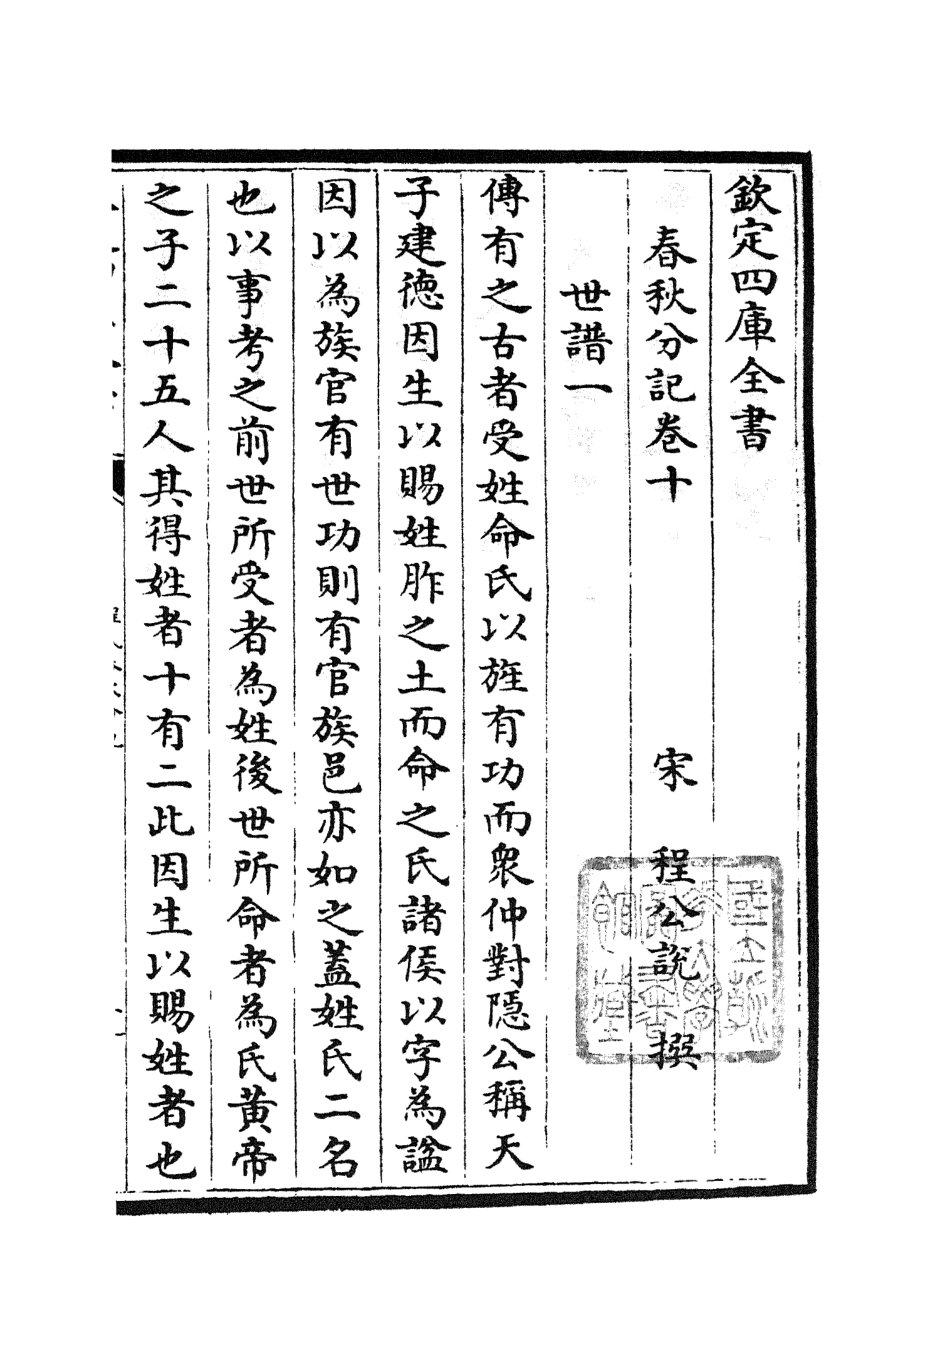 欽定四庫全書
春秋分記卷十
宋　程公說　撰
世譜一
傳有之古者受姓命氏以旌有功而衆仲對隱公稱天
子建德因生以賜姓胙之土而命之氏諸侯以字為諡
因以為族官有世功則有官族邑亦如之蓋姓氏二名
也以事考之前世所受者為姓後世所命者為氏黃帝
之子二十五人其得姓者十有二此因生以賜姓者也